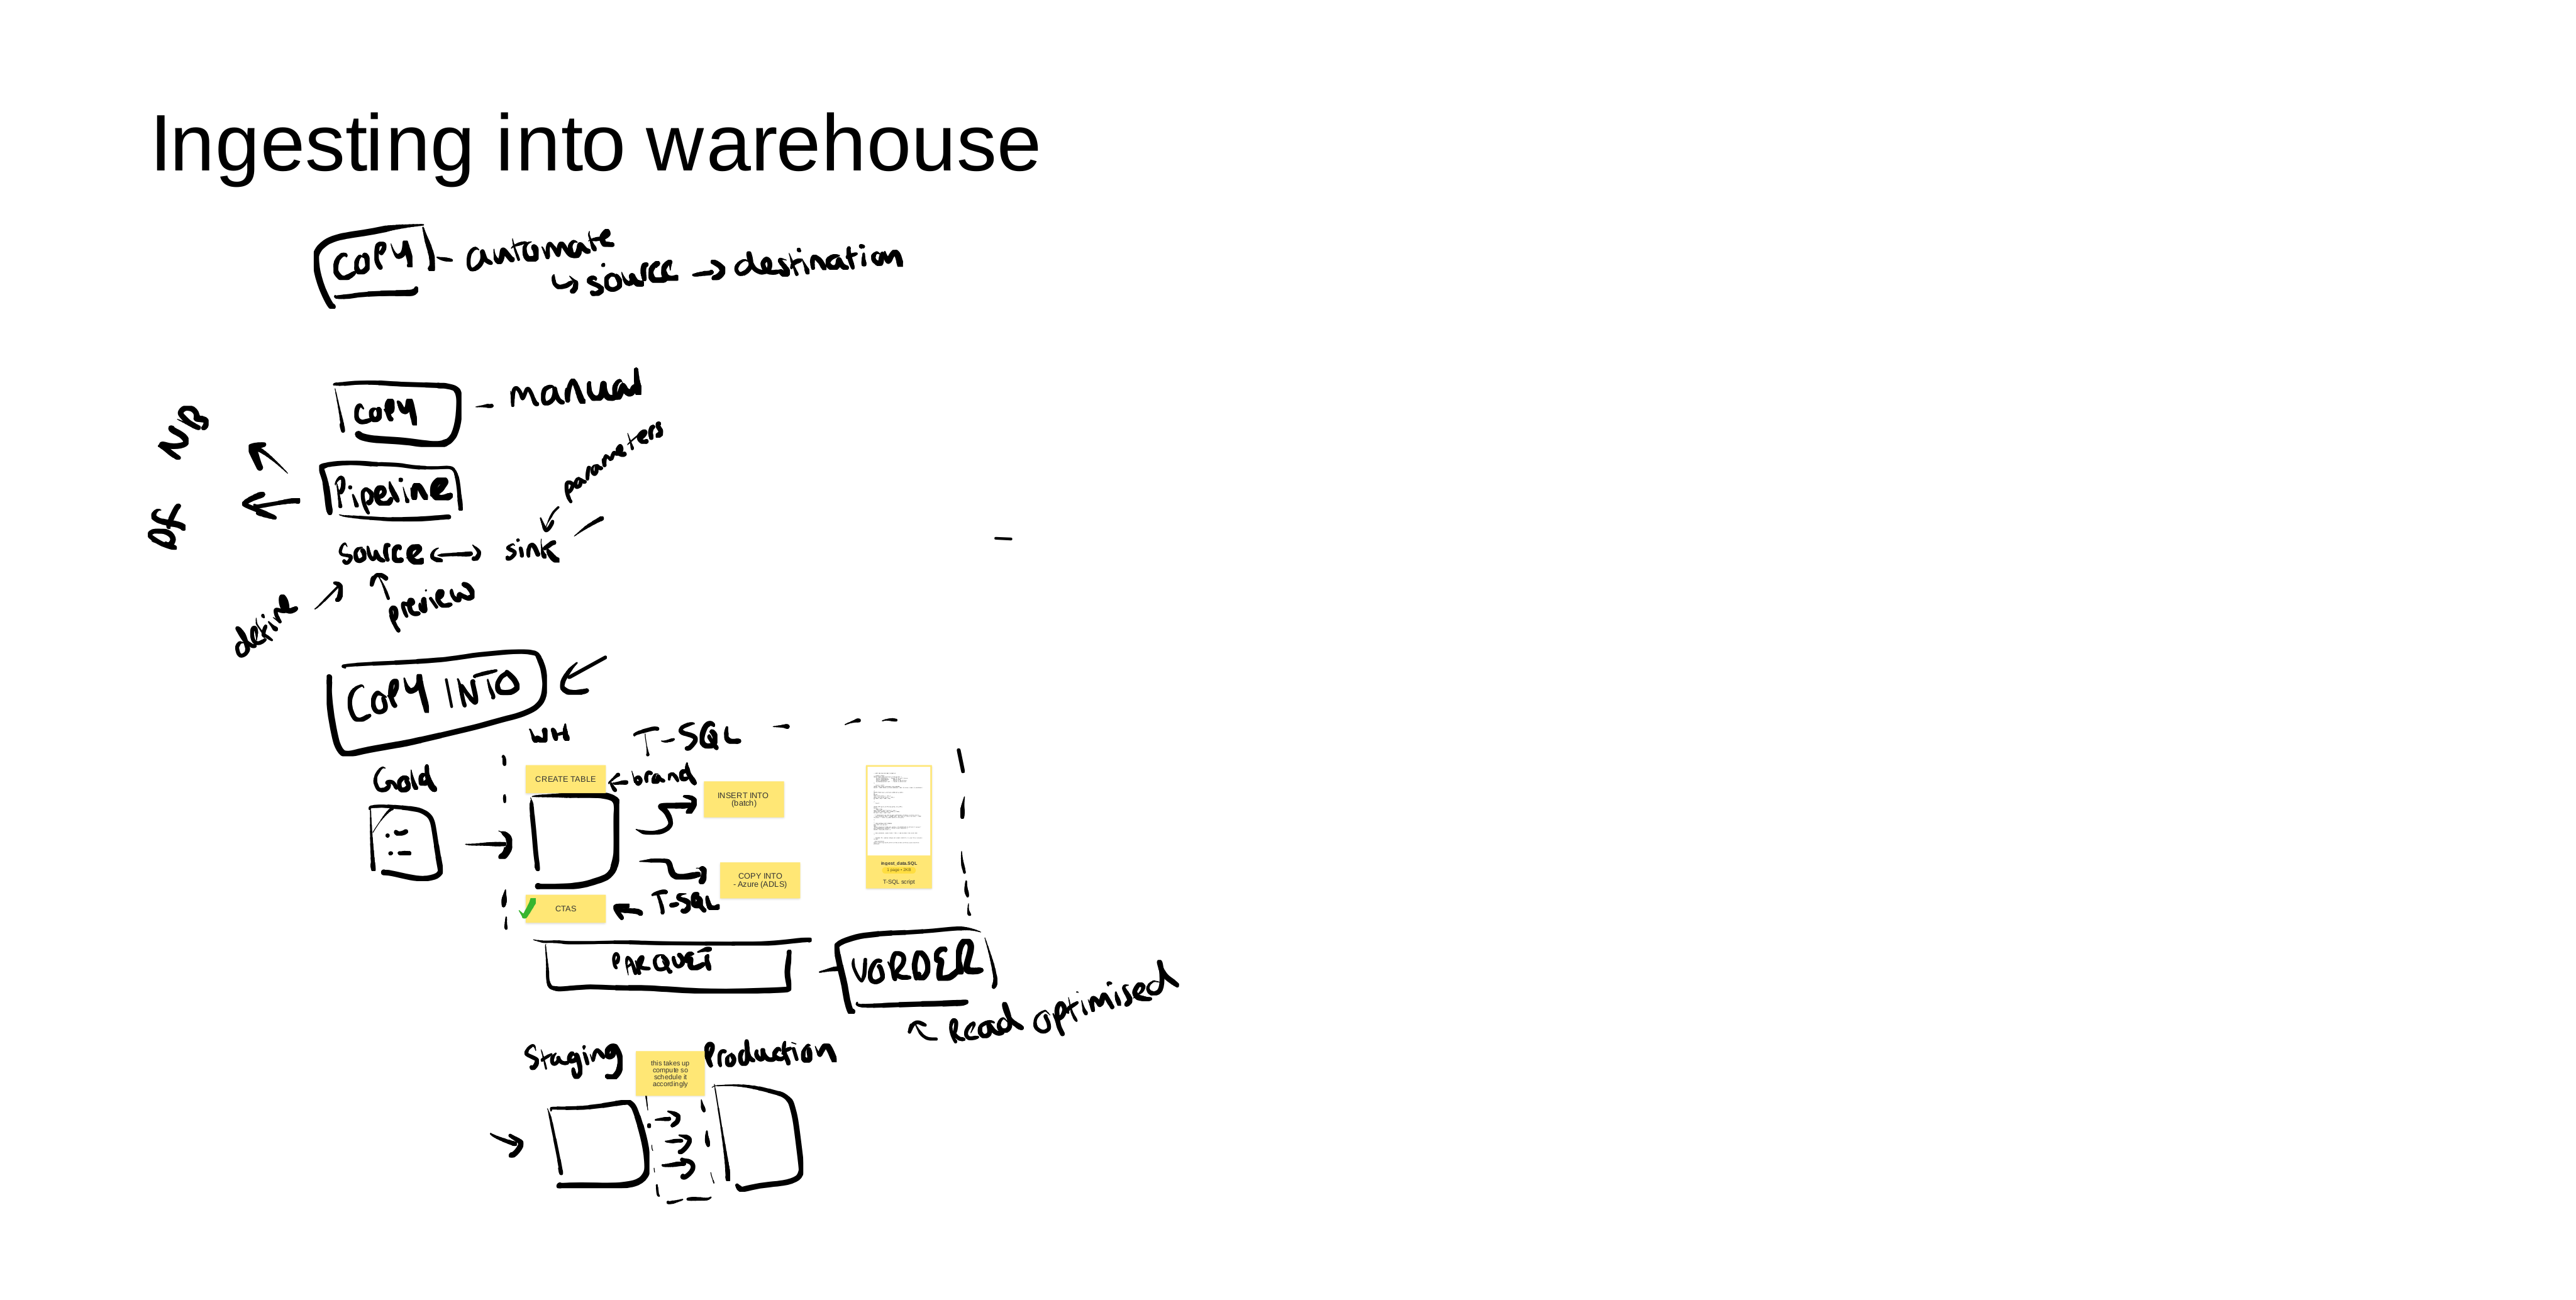 Ingesting into warehouse
COPY - automate
↳ source → destination
COPY - manual
NB
parameters
Pipeline
DF
source ↔ sink
define
preview
COPY INTO
WH
T-SQL
Gold
CREATE TABLE
← brand
INSERT INTO
(batch)
COPY INTO
- Azure (ADLS)
ingest_data.SQL
T-SQL script
CTAS
← T-SQL
PARQUET
- VORDER
Read optimised
Staging
this takes up
compute so
schedule it
accordingly
Production